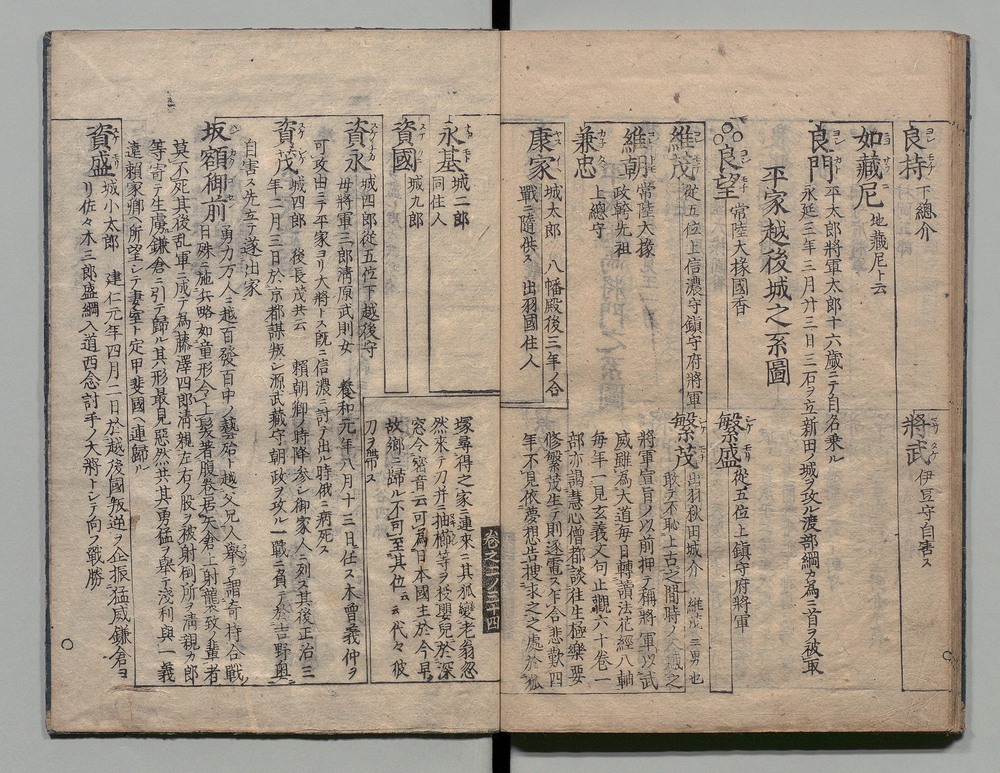 良持 下總介
將武 伊豆守自害ス
如藏尼 地藏尼ト云
良門 平太郎將軍太郎十六歳ニテ自名乘ル
永延三年三月廿三日二石ヲ立新田ノ城ヲ攻ル渡部綱カ為ニ首ヲ被取
平家越後城之系圖
良望 常陸大掾國香
繁盛 從五位上鎮守府將軍
維茂 從五位上信濃守鎮守府將軍
繁茂 出羽秋田城介 維茂三男也
敢テ不恥上古之間時ノ人越之
將軍宣旨ノ以前押テ稱將軍以武
威雖為大道每日轉讀法花經八軸
每年一見玄義文句止觀六十卷一
部亦謁惠心僧都談往生極樂要
修繁茂生テ則逐電ス乍合悲歎四
年不見依夢想告搜求之之處於狐
維朝 常陸大掾
政幹先祖
兼忠 上總守
康家 城太郎 八幡殿後三年ノ合
戰ニ隨供ス 出羽國住人
永基 城二郎
同住人
資國 城九郎
塚尋得之家ニ連來ニ其狐變老翁忽
然來テ刀并ニ抽櫛等ヲ授嬰兒於深
窓令密音云可為日本國主於今早
故鄉ニ歸ル不可至其位ニ云代々彼
刀ヲ帶ス
卷之十ノ三十四
資永 城四郎從五位下越後守
母將軍三郎淸原武則女 養和元年八月十三日任ス木曾義仲ヲ
可攻由ニテ平家ヨリ大將トス既ニ信濃ニ討テ出ル時俄ニ病死ス
資茂 城四郎 後長茂共云 賴朝御ノ時降参シ御家人ニ列ス其後正治三
年二月三日於京都謀叛シ源武藏守朝政ヲ攻ル一戰ニ負テ於吉野奥
自害ス先立テ遂出家
坂額御前 勇力万人ニ越百發百中ノ藝殆ト越父兄人擧テ謂奇特合戰
日殊ニ施兵略如童形令上髮著腹卷居矢倉上射龍襲敢ノ輩者
莫不死其後乱軍ニ成テ為藤澤四郎淸親左右ノ股ヲ被射倒所ヲ淸親カ郎
等寄テ生虜鎌倉ニ引テ歸ル其形最見惡然共其勇猛ヲ擧テ淺利與一義
遠賴家卿ヘ所望シテ妻室ト定甲斐國ニ連歸ル
資盛 城小太郎 建仁元年四月二日於越後國叛逆ヲ企振猛威鎌倉ヨ
リ佐々木三郎盛綱入道西念討手ノ大將トシテ向フ戰勝